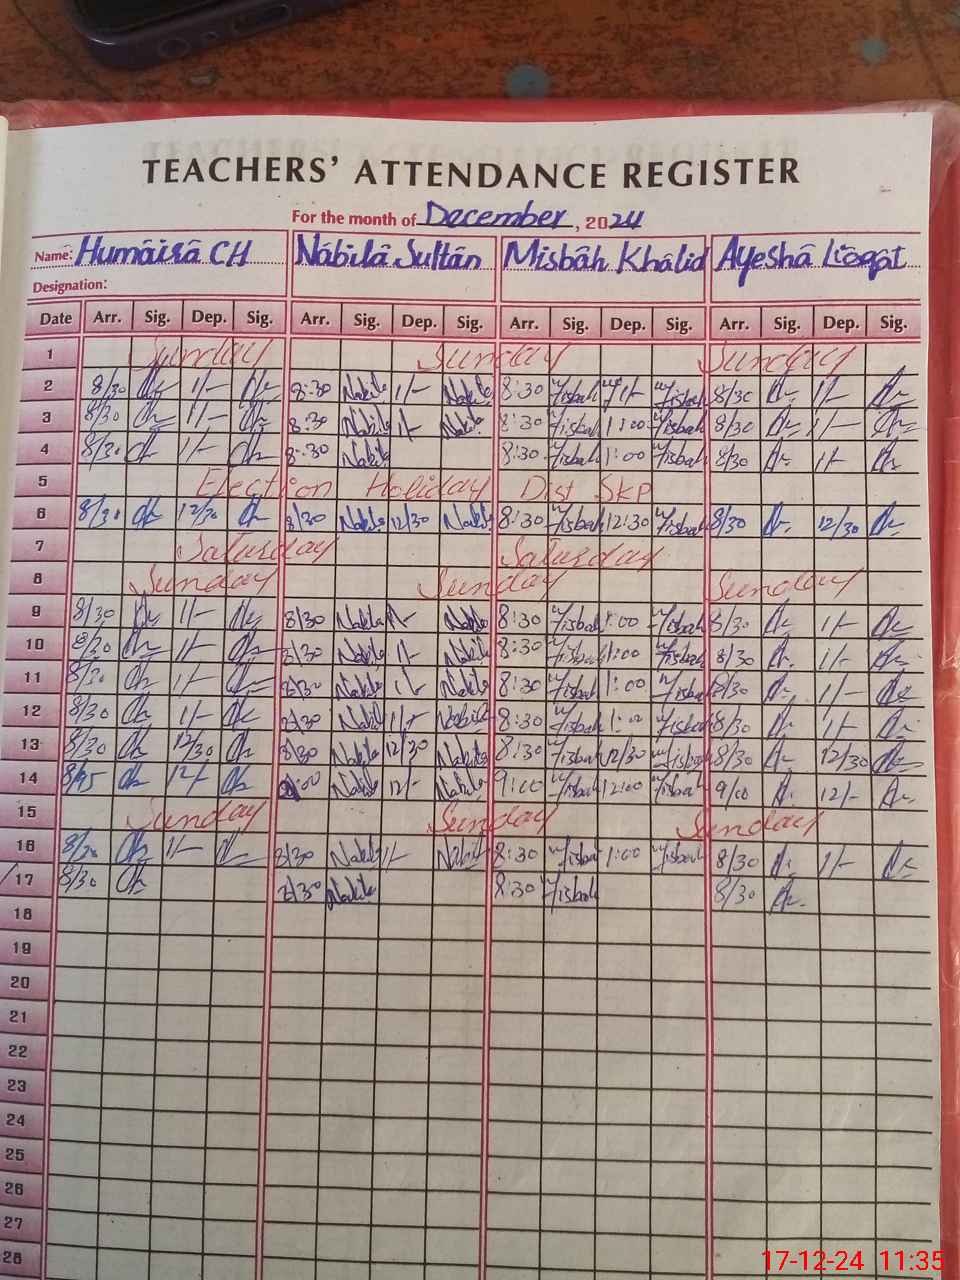 TEACHERS' ATTENDANCE REGISTER
For the month of December, 2024
Name: Humāirā CH Nābilā Sultān Misbāh Khālid Ayeshā Liāqāt
Designation:
Date Arr. Sig. Dep. Sig. Arr. Sig. Dep. Sig. Arr. Sig. Dep. Sig. Arr. Sig. Dep. Sig.
1 Sunday Sunday Sunday
2 8/30 1/- 8:30 Nabila 1/- Nabila 8:30 Misbah 1/- Misbah 8/30 1/-
3 8/30 1/- 8:30 Nabila 1/- Nabila 8:30 Misbah 1:00 Misbah 8/30 1/-
4 8/30 1/- 8:30 Nabila 8:30 Misbah 1:00 Misbah 8/30 1/-
5 Election Holiday Dist SKP
6 8/30 12/30 8/30 Nabila 12/30 Nabila 8:30 Misbah 12:30 Misbah 8/30 12/30
7 Saturday Saturday
8 Sunday Sunday Sunday
9 8/30 1/- 8/30 Nabila 1/- Nabila 8:30 Misbah 1:00 Misbah 8/30 1/-
10 8/30 1/- 8/30 Nabila 1/- Nabila 8:30 Misbah 1:00 Misbah 8/30 1/-
11 8/30 1/- 8/30 Nabila 1/- Nabila 8:30 Misbah 1:00 Misbah 8/30 1/-
12 8/30 1/- 8/30 Nabila 1/- Nabila 8:30 Misbah 1:00 Misbah 8/30 1/-
13 8/30 12/30 8/30 Nabila 12/30 Nabila 8:30 Misbah 12/30 Misbah 8/30 12/30
14 12/- Nabila 12/- Nabila 9:00 Misbah 12:00 Misbah 9/00 12/-
15 Sunday Sunday Sunday
16 8/30 1/- 8/30 Nabila 1/- Nabila 8:30 Misbah 1:00 Misbah 8/30 1/-
17 8/30 8/30 Nabila 8:30 Misbah 8/30
18
19
20
21
22
23
24
25
26
27
28
17-12-24 11:35